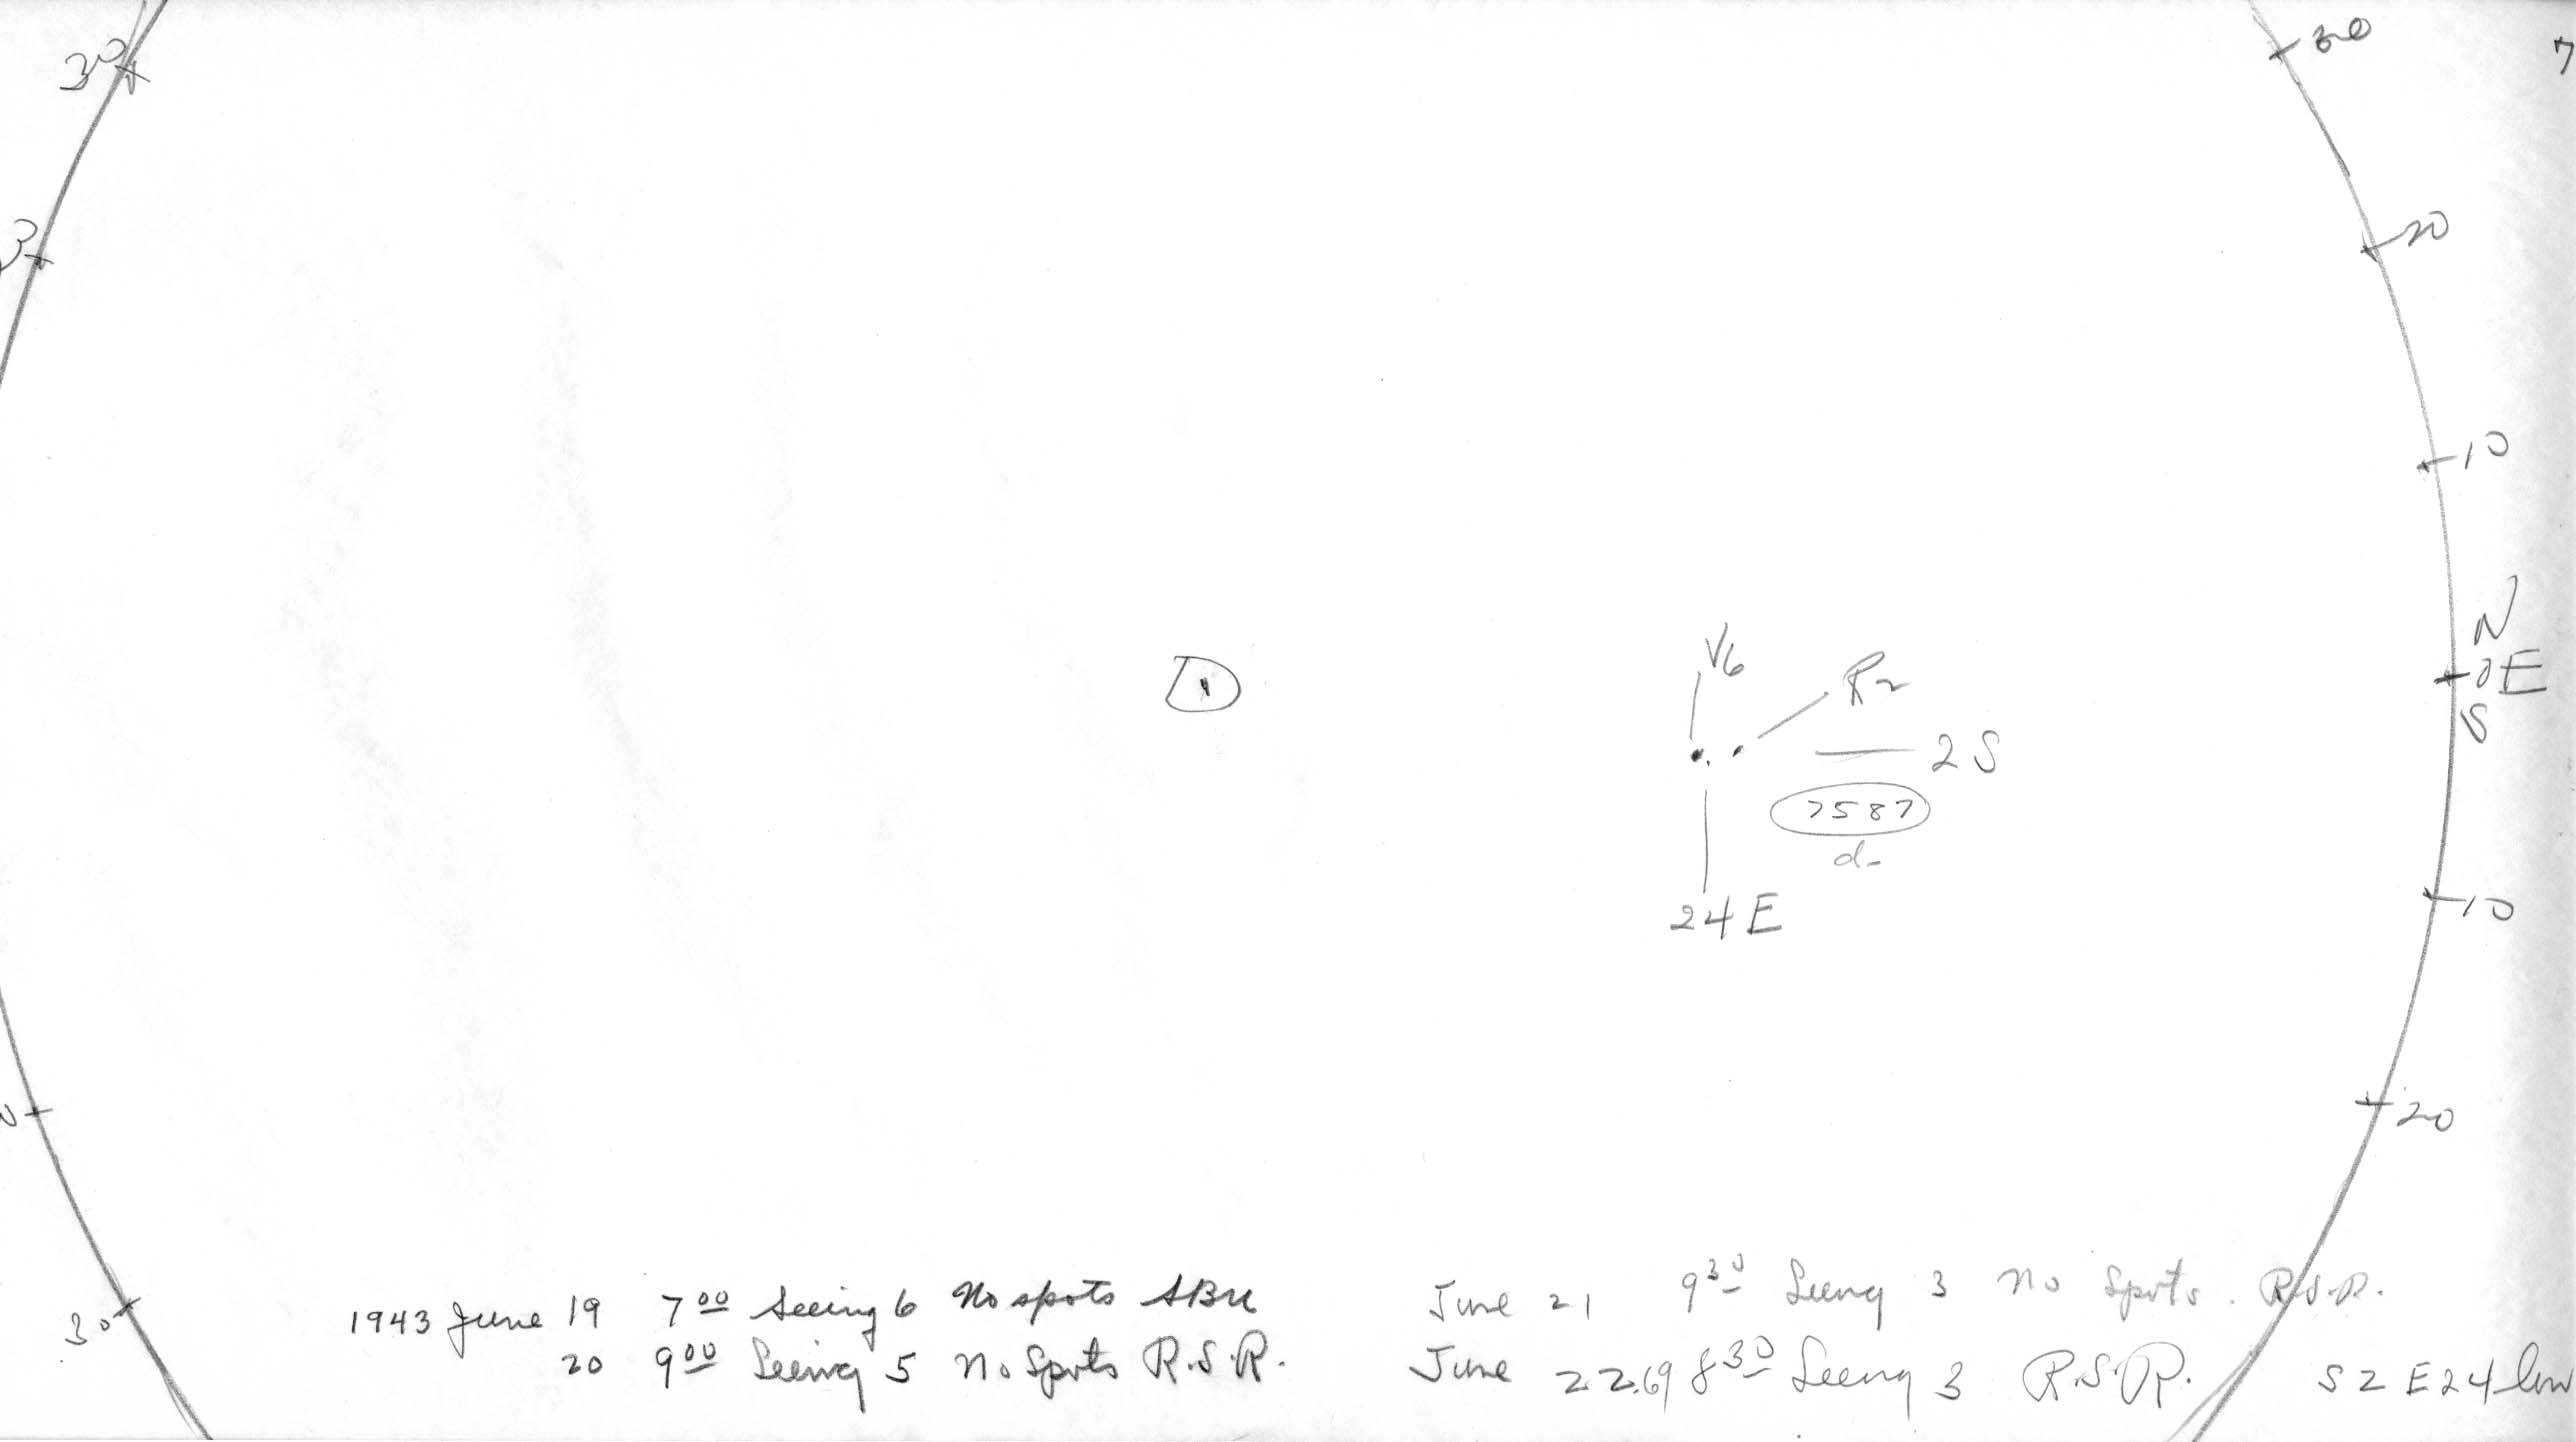 30
30
20
10
N
0 E
S
V6
R2
2 S
7587
d-
24 E
10
20
30
1943 June 19 7 00 Seeing 6 No spots
20 9 00 Seeing 5 No Spots R.S.R.
June 21 9 30 Seeing 3 No Spots. R.S.R.
June 22.69 8 30 Seeing 3 R.S.R. S2 E24